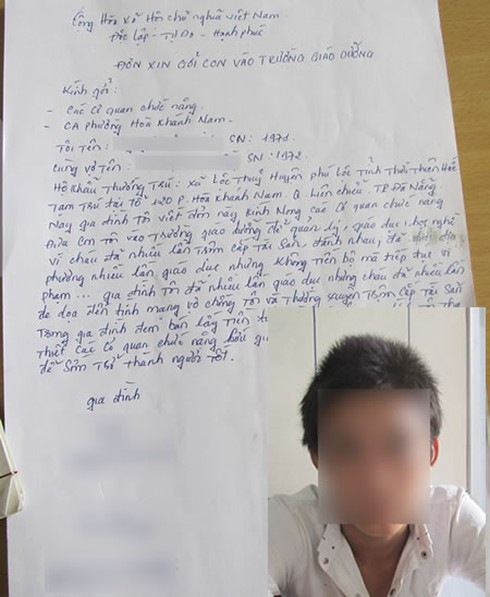 Cộng Hòa Xã Hội chủ nghĩa việt Nam.
Độc lập - Tự Do - Hạnh phúc
ĐƠN XIN GỞI CON VÀO TRƯỜNG GIÁO DƯỠNG
Kính gởi:
- Các cơ quan chức năng.
- CA phường Hoà Khánh Nam.
Tôi Tên: SN: 1971
Cùng vợ Tên: SN: 1972
Hộ Khẩu Thường Trú: xã Lộc Thuỷ Huyện phú Lộc Tỉnh Thừa Thiên Huế
Tạm Trú tại tổ 120 P. Hòa Khánh Nam. Q. Liên chiểu. TP Đà Nẵng.
Nay gia đình Tôi viết đơn này Kính Mong các cơ quan chức năng
Đưa con tôi vào Trường giáo dưỡng để quản lý, giáo dục, học nghề
vì cháu đã nhiều lần Trộm cắp Tài Sản, đánh nhau, đã
phường nhiều lần giáo dục nhưng không tiến bộ mà tiếp tục vi
phạm... gia đình Tôi đã nhiều lần giáo dục nhưng cháu đã nhiều lần
đe dọa đến tính mạng vợ chồng Tôi và Thường xuyên Trộm cắp Tài Sản
Trong gia đình đem bán lấy tiền
Thiết Các cơ quan chức năng
để Sớm Trở thành người Tốt.
gia đình